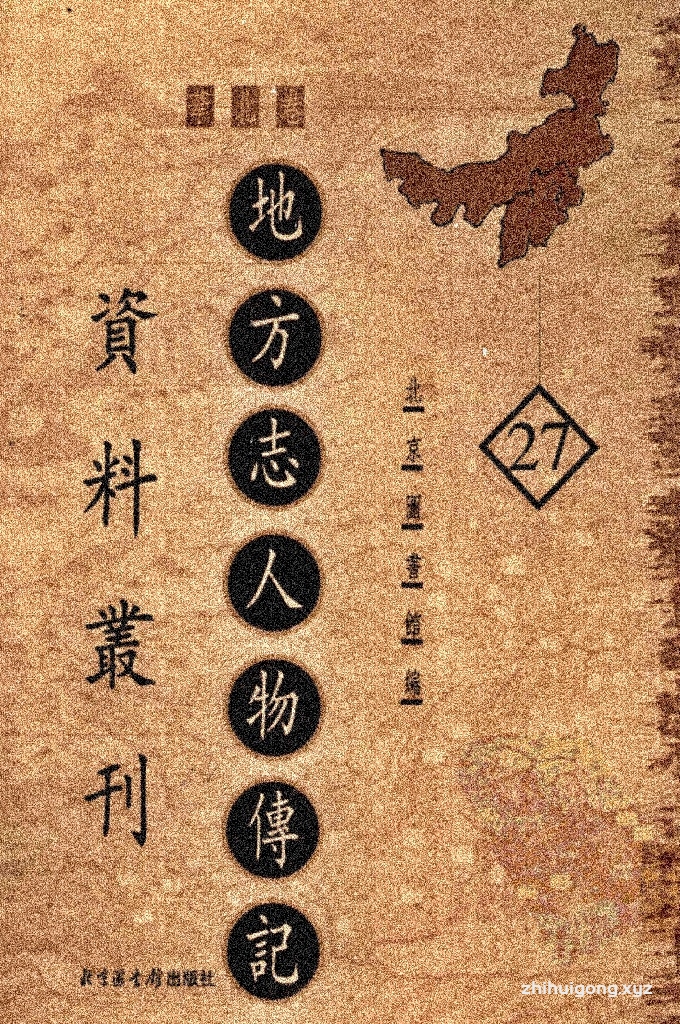 27
北京圖書館編
地方志人物傳記
資料叢刊
北京圖書館出版社
zhihuigong.xyz